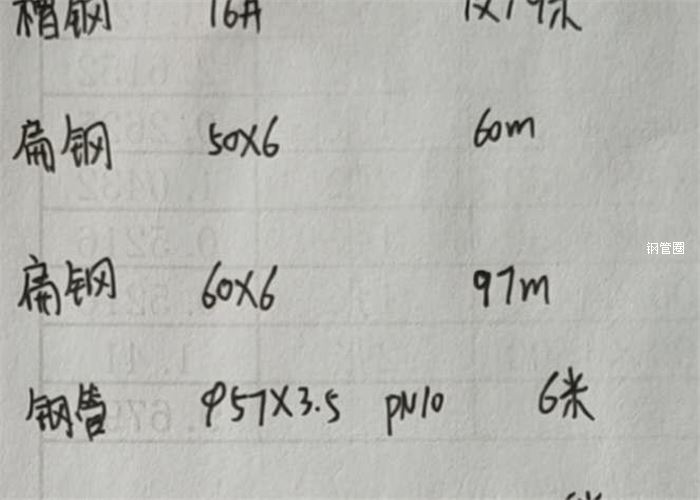 槽钢 16#
扁钢 50X6 60m
钢管圈
扁钢 60X6 97m
钢管 φ57X3.5 PN10 6米